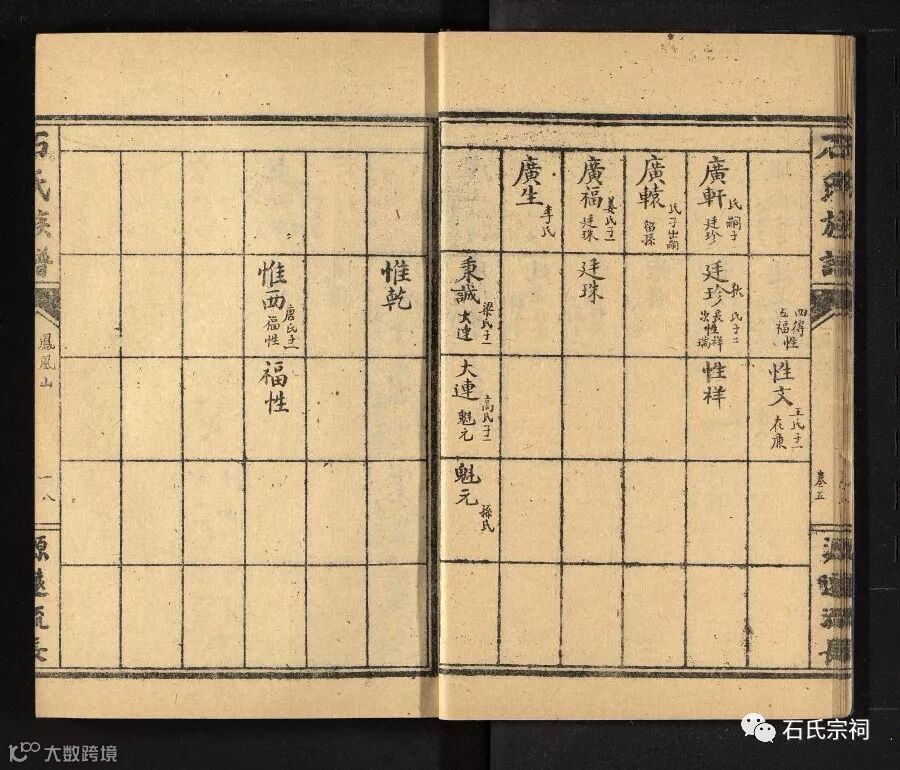 石氏族譜
卷五
源遠流長
四得性
五福性
性文
王氏子一
在康
廣軒
氏嗣子
廷珍
廷珍
氏子二
長性祥
次性瑞
性样
廣轅
氏子出嗣
廣福
姜氏子一
廷珠
廷珠
廣生
李氏
秉誠
梁氏子一
大連
大連
高氏子一
魁元
魁元
孫氏
惟乾
惟西
唐氏子一
福性
福性
石氏族譜
鳳凰山
一八
源遠流長
石氏宗祠
大数跨境